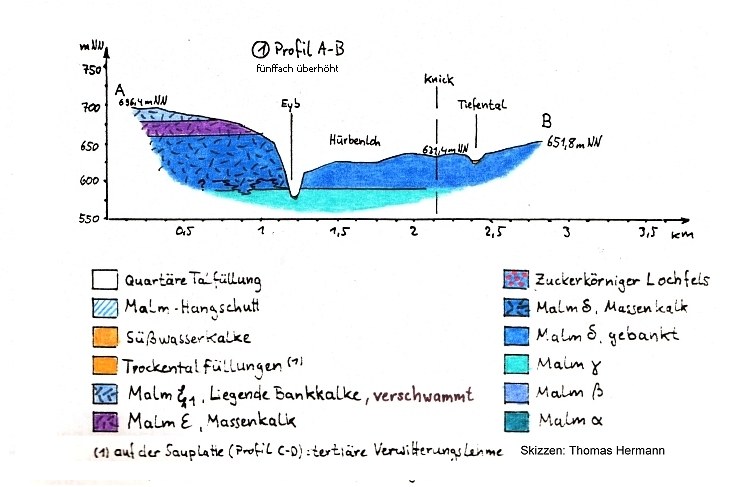 ① Profil A-B
fünffach überhöht
mNN
750
700
650
600
550
A
696,4mNN
Eyb
Hürbenloh
Knick
621,4mNN
Tiefental
B
651,8mNN
?
0,5
1
1,5
2
2,5
3
3,5
km
Quartäre Talfüllung
Malm-Hangschutt
Süßwasserkalke
Trockentalfüllungen (1)
Malm ζ1, Liegende Bankkalke, verschwammt
Malm ε, Massenkalk
Zuckerkörniger Lochfels
Malm δ, Massenkalk
Malm δ, gebankt
Malm γ
Malm β
Malm α
(1) auf der Sauplatte (Profil C-D): tertiäre Verwitterungslehme
Skizzen: Thomas Hermann